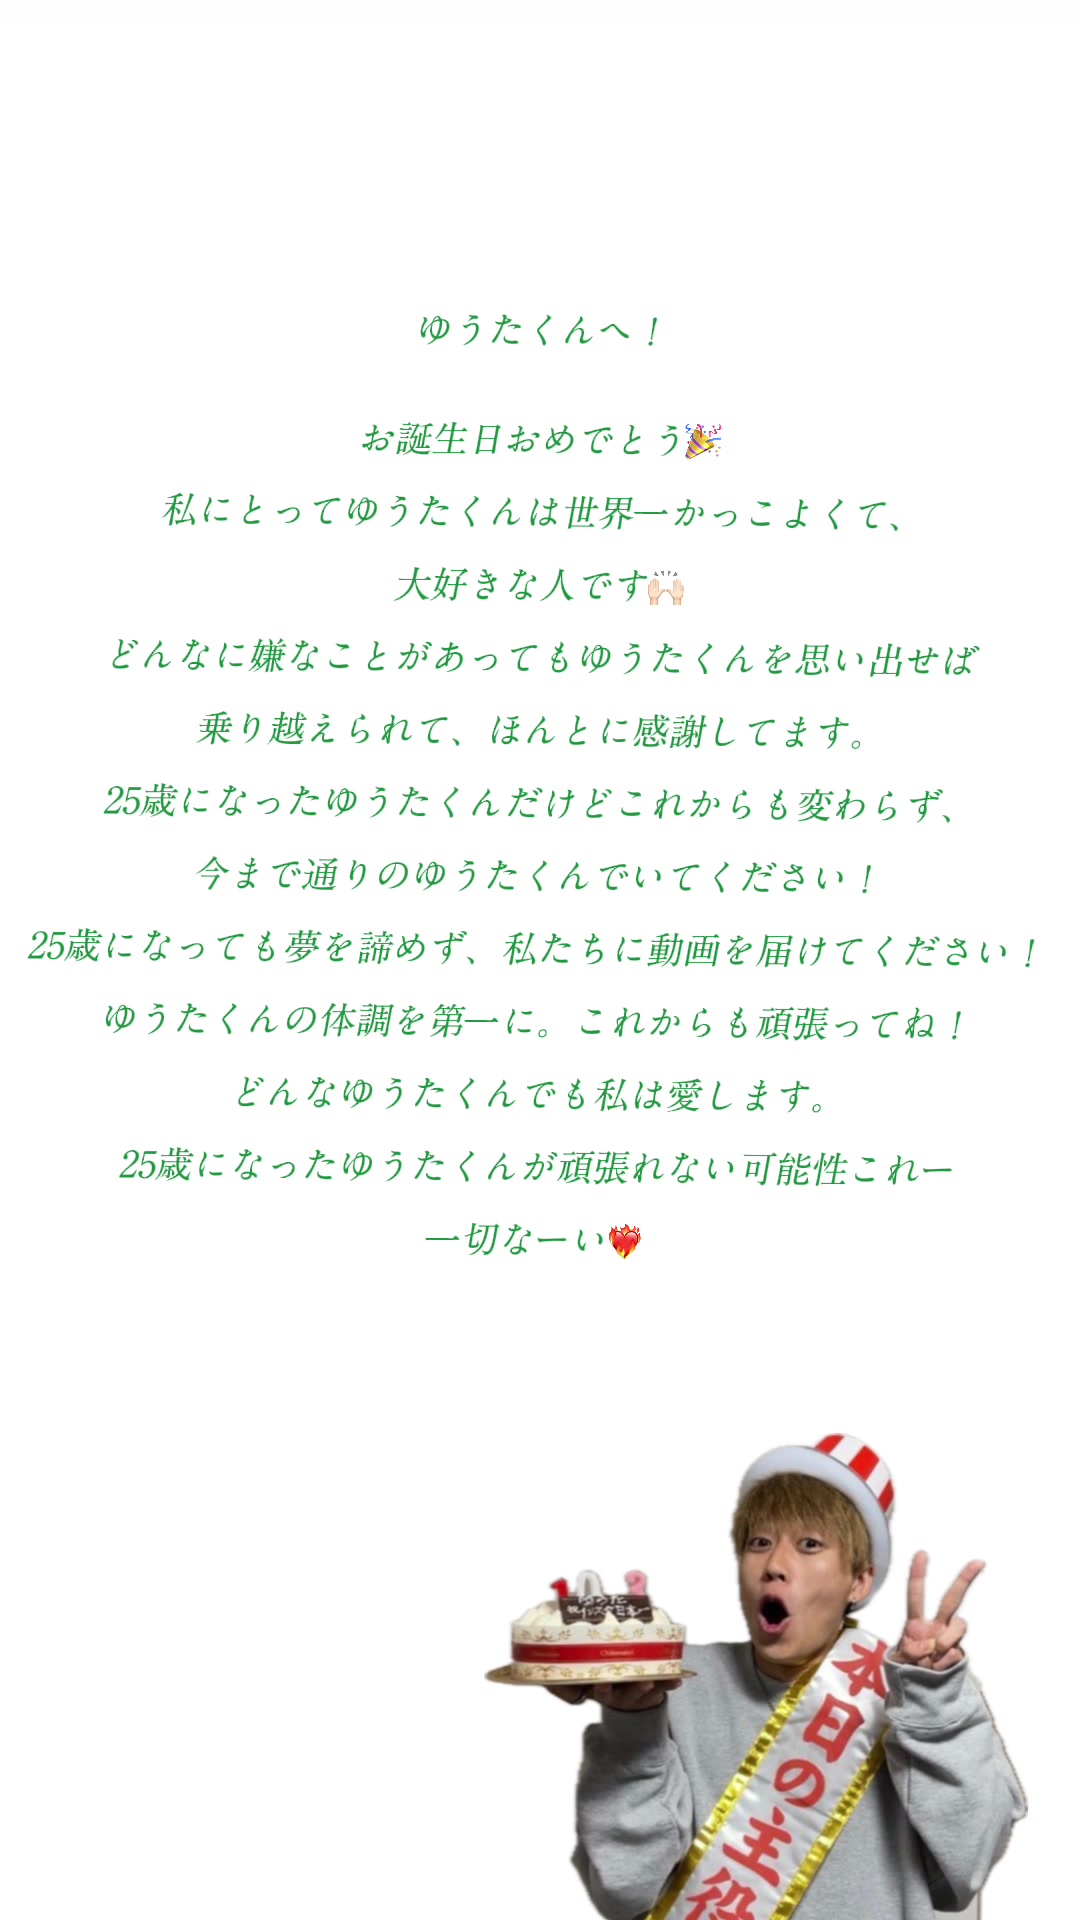 ゆうたくんへ！
お誕生日おめでとう🎉
私にとってゆうたくんは世界一かっこよくて、
大好きな人です🙌🏻
どんなに嫌なことがあってもゆうたくんを思い出せば
乗り越えられて、ほんとに感謝してます。
25歳になったゆうたくんだけどこれからも変わらず、
今まで通りのゆうたくんでいてください！
25歳になっても夢を諦めず、私たちに動画を届けてください！
ゆうたくんの体調を第一に。これからも頑張ってね！
どんなゆうたくんでも私は愛します。
25歳になったゆうたくんが頑張れない可能性これー
一切なーい❤️‍🔥
ゆうた
本日の主役